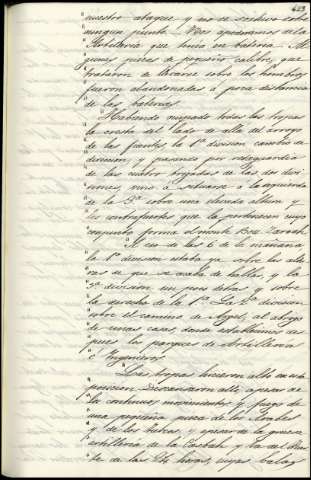 423
nuestro ataque y no se sostuvo sobre
ningun punto. Nos apoderamos de la
Artilleria que tenia en bateria. Al
gunas piezas de pequeño calibre, que
trataron de llevarse sobre los hombros
fueron abandonadas á poca distancia
de las baterias.
Habiendo ocupado todas las tropas
la cresta del lado de allá del arroyo
de las fuentes, la 1ª division cambió de
direccion, y pasando por retaguardia
de las cuatro brigadas de las dos divi
siones, vino á situarse á la izquierda
de la 3ª sobre una elevada altura y
los contrafuertes que la producen cuyo
conjunto forma el monte Bou Zareah.
A eso de las 6 de la mañana
la 1ª division estaba ya sobre las altu
ras de que se acaba de hablar, y la
3ª division un poco detras y sobre
la derecha de la 1ª. La 2ª division
sobre el camino de Argel, al abrigo
de unas casas donde establecimos des
pues los parques de Artilleria
é Ingenieros.
Las tropas hicieron alto en esta
posicion. Descansaron alli, apesar de
los continuos movimientos y fuego de
una pequeña pieza de los Arabes
y de los Turcos, y apesar de la gruesa
artilleria de la Casbah y la del Fuer
te de las 24 horas, cuyas balas